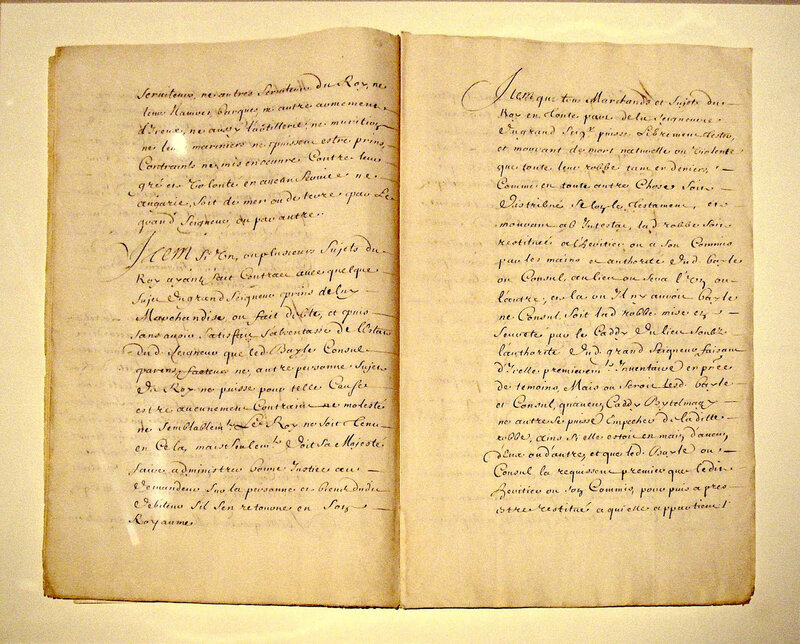 serviteurs, ne autres serviteurs du Roy, ne
leurs Nauires, barques ne autre armement
d'iceux, ne aussy l'artillerie, ne munition
ne leurs mariniers ne puissent estre prins,
Contraints ne mis en œuure Contre leur
gré et Volonté en aucun seruice ne
angarie, soit de mer ou de terre par Le
grand Seigneur ou par autre.
Item Si Un, ou plusieurs Sujets du
Roy ayant fait Contract auec quelque
Sujet du grand Seigneur prins de luy
Marchandise, ou fait debte, et puis
sans auoir Satisfait S'absentasse de l'Estat
dud. Seigneur que led. Bayle Consul
parens, facteur ne autre personne Sujete
du Roy ne puisse pour telle Cause
estre aucunement Contraint ne molesté
ne Semblablemt. Le Roy ne soit tenu
en Cela, mais Seulemt. doit Sa Majesté
faire administrer bonne Justice au
demandeur Sur la personne et biens dudit
debiteur S'il S'en retourne en Son
Royaume
Item que tous Marchands et Sujets du
Roy en toute part de la Seigneurie
du grand Seigr. puisse Librement tester,
et mourant de mort naturelle ou Violente
que toute leur robbe tam en deniers,
Comme en toute autre Chose Soit
distribué Selon le testament, et
mourant ab Intestat, lad robbe Soit
restituée a l'heritier ou a Son Commis
par les mains ou authorité dud. bayle
ou Consul, au lieu ou sera l'un ou
l'autre; et la ou Il n'y auroit bayle
ne Consul Soit lad robbe mise en
Seureté par le Caddy du lieu Soubz
l'authorité dud grand Seigneur, faisant
d'icelle premieremt. Inuentaire en prnce
de temoins, Mais ou seroit Lesd. bayle
et Consul, qu'aucun Caddy Bytelmagy
ne autre Se puisse Empecher de la ditte
robbe, ains si elle estoit en main d'aucun
d'eux ou d'autres, et que led. Bayle ou
Consul la requissent premier que ledit
heritier ou Son Commis, pour puis apres
estre restitué a qui elle appartient.